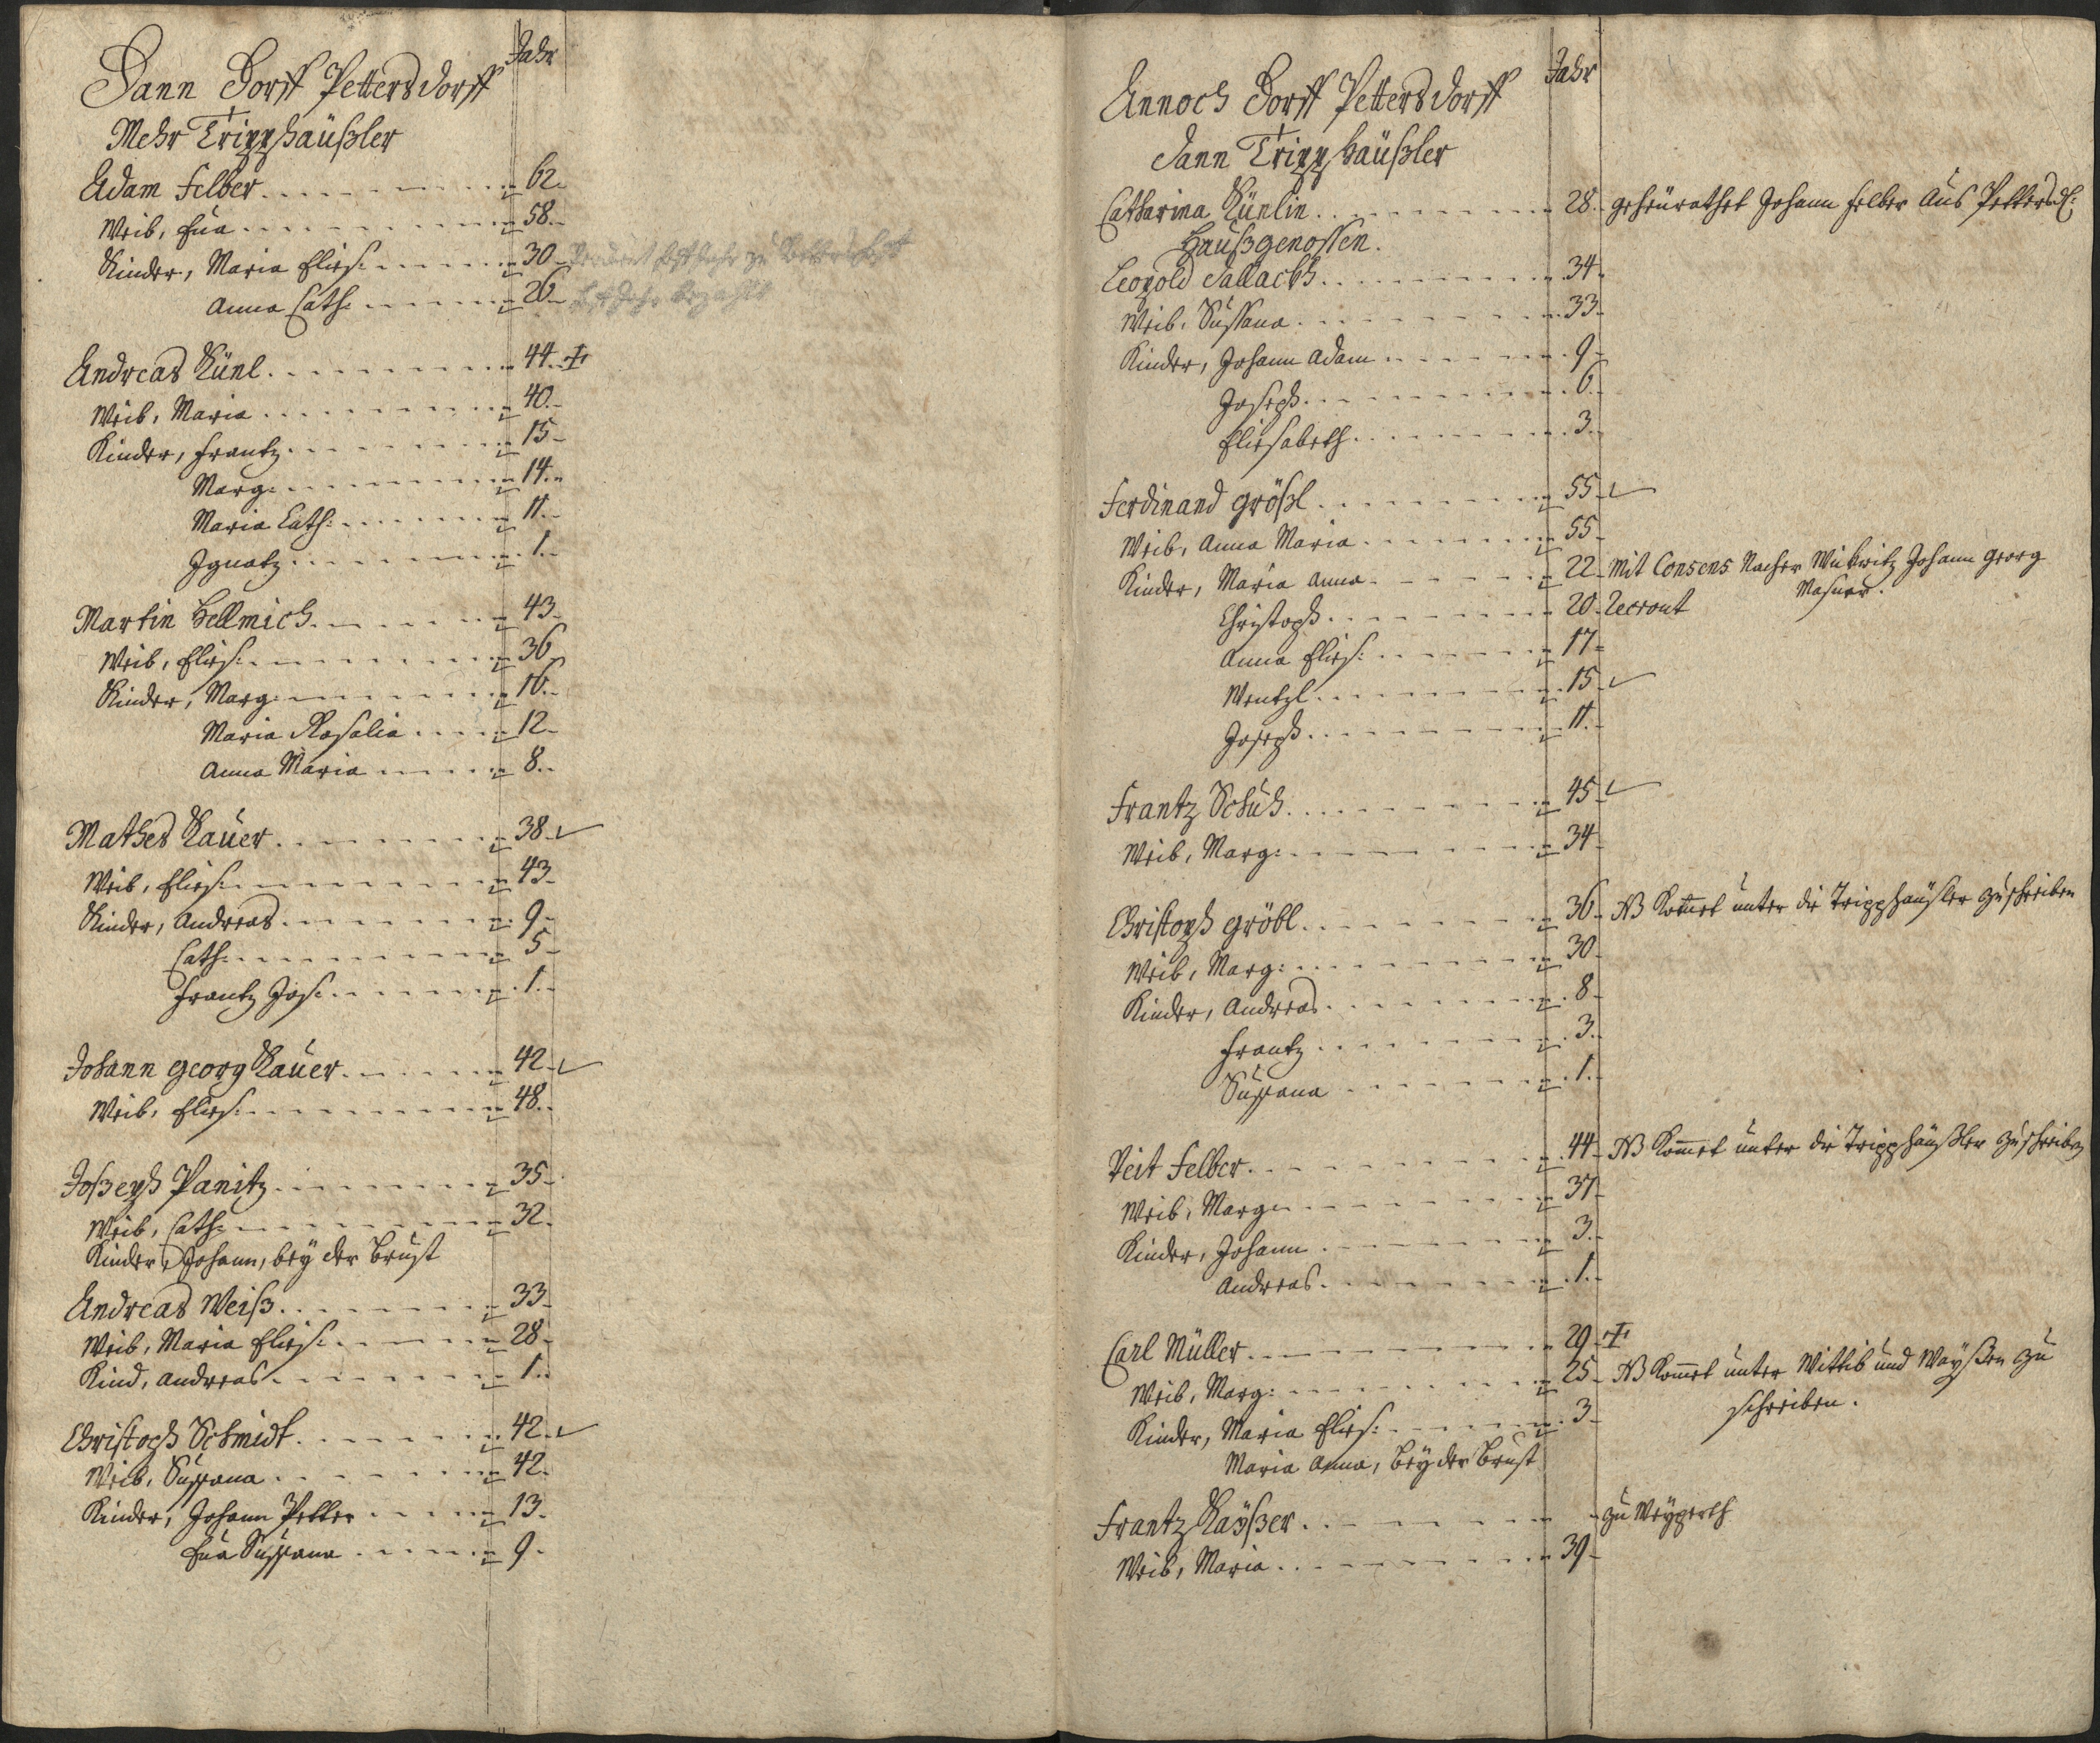 Dann Dorff Pettersdorff Jahr
Mehr Tripphäußler
Adam Felber 62
Weib, Eva 58
Kinder, Maria Elis: 30
Anna Cath: 26
Andreas Künl 44
Weib, Maria 40
Kinder, Frantz 15
Marg: 14
Maria Cath: 11
Ignatz 1
Martin Hellmich 43
Weib, Elis: 36
Kinder, Marg: 16
Maria Rosalia 12
Anna Maria 8
Mathes Kauer 38
Weib, Elis: 43
Kinder, Andreas 9
Cath: 5
Frantz Jos: 1
Johann Georg Kauer 42
Weib, Elis: 48
Joßeph Panitz 35
Weib, Cath: 32
Kinder, Johann, bey der Brust
Andreas Weiß 33
Weib, Maria Elis: 28
Kind, Andreas 1
Christoph Schmidt 42
Weib, Sußana 42
Kinder, Johann Petter 13
Eva Sußana 9
Annoch Dorff Pettersdorff Jahr
dann Tripphäußler
Catharina Künlin 28 geheurathet Johann Felber aus Pettersd:
Haußgenossen.
Leopold Sallach 34
Weib, Sußana 33
Kinder, Johann Adam 9
Joseph 6
Eliesabeth 3
Ferdinand Größl 55
Weib, Anna Maria 55
Kinder, Maria Anna 22 Mit Consens Johann Georg
Christoph 20
Anna Elis: 17
Wentzl 15
Joseph 11
Frantz Schuh 45
Weib, Marg: 34
Christoph Gröbl 36 NB Komet unter die Tripphäußler zuschreiben
Weib, Marg: 30
Kinder, Andreas 8
Frantz 3
Sußana 1
Veit Felber 44 NB Komet unter die Tripphäußler zuschreiben
Weib, Marg: 37
Kinder, Johann 3
Andreas 1
Carl Müller 29
Weib, Marg: 25 NB Komet unter Wittib und Wayßen zu
schreiben.
Kinder, Maria Elis: 3
Maria Anna, bey der Brust
Frantz Kayßer zu Weyperth
Weib, Maria 39